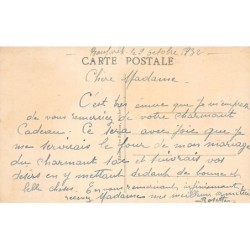 octobre 1932
CARTE POSTALE
Chère Madame.
C'est très émue que je m'empresse
de vous remercier de votre charmant
Cadeau. Ce sera avec joie que je
me servirais le jour de mon mariage
du charmant sac et j'aurais vos
dedans de bonnes et
belles choses. En vous remerciant infiniment
recevez Madame mes meilleures